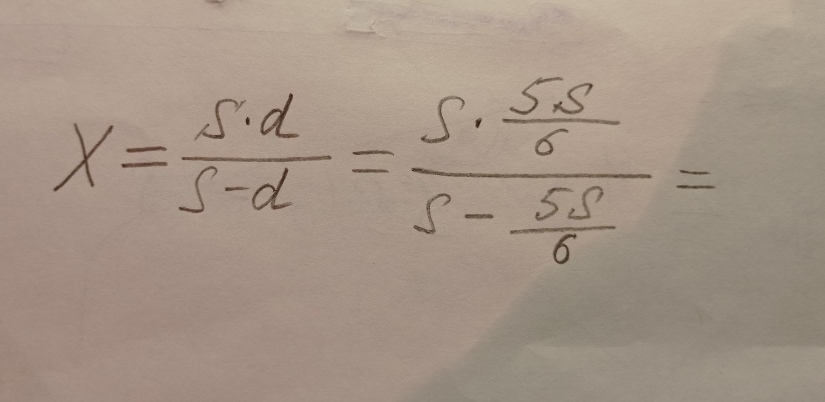 X = \frac{S \cdot d}{S - d} = \frac{S \cdot \frac{5S}{6}}{S - \frac{5S}{6}} =